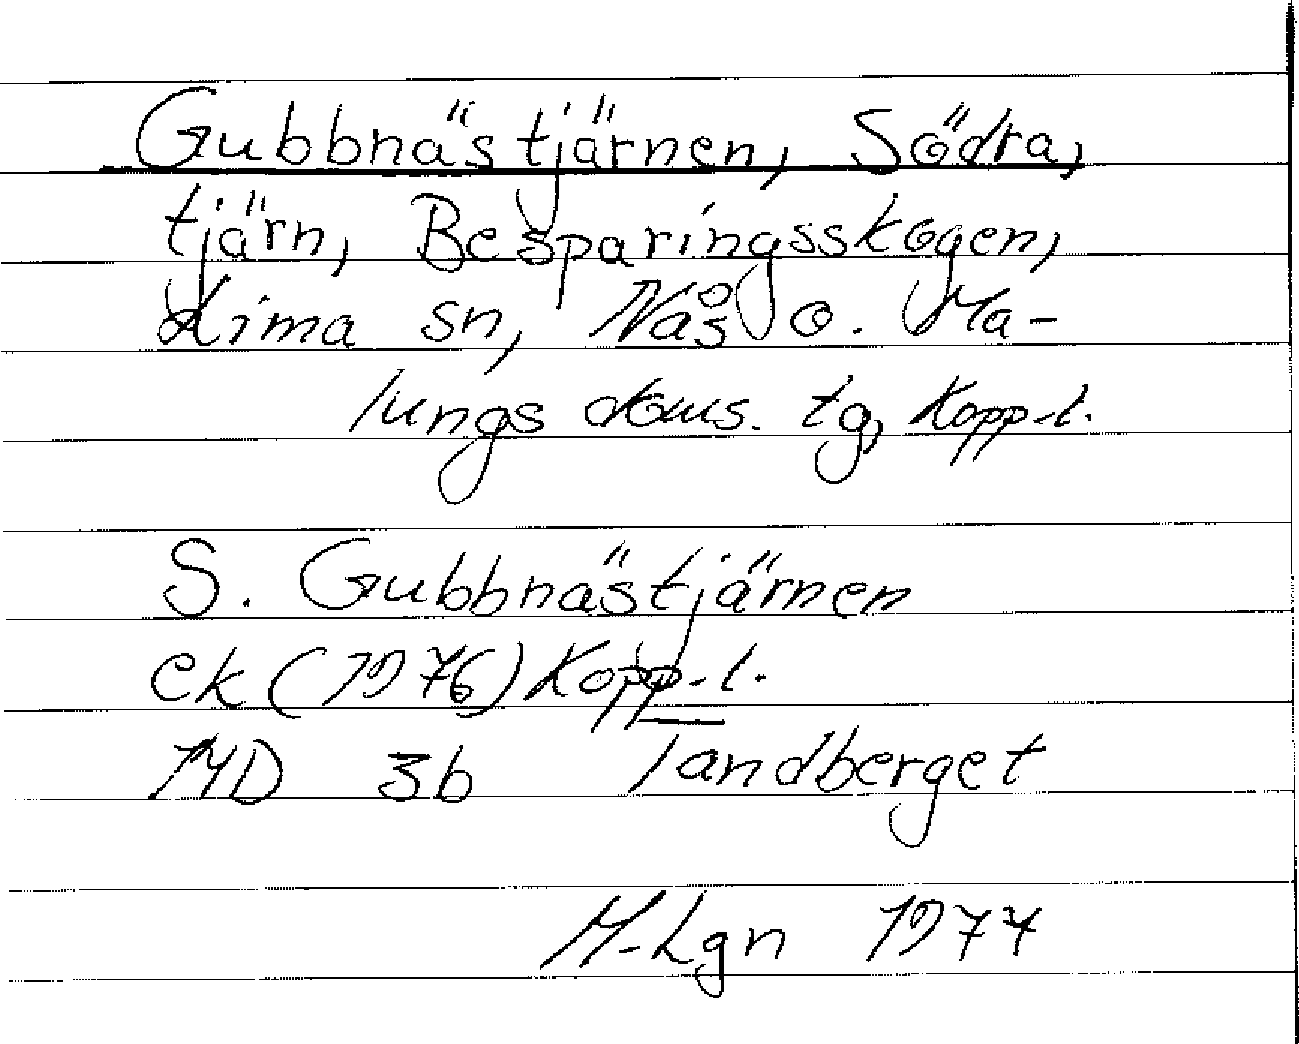 Gubbnästjärnen, Södra,
tjärn, Besparingsskogen,
Lima sn, Nås o. Ma-
lungs doms. tg, Kopp-l.
S. Gubbnästjärnen
ek (1976) Kopp-l.
MD 3b Tandberget
M-Lgn 1977